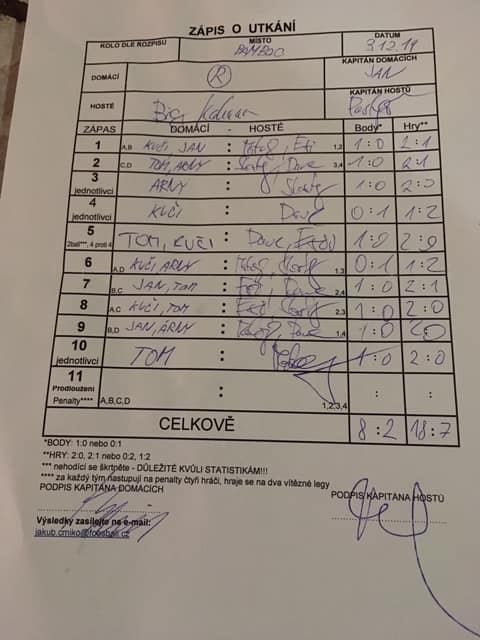 ZÁPIS O UTKÁNÍ
KOLO DLE ROZPISU MÍSTO DATUM
BAMBOO 3.12.19
DOMÁCÍ R KAPITÁN DOMÁCÍCH
JAN
HOSTÉ Big KAPITÁN HOSTŮ
ZÁPAS DOMÁCÍ - HOSTÉ Body* Hry**
1 A,B KUČI, JAN : 1,2 1:0 2:1
2 C,D TOM, ARNY : Dave 3,4 1:0 2:1
3 jednotlivci ARNY : 1:0 2:0
4 jednotlivci KUČI : Dave 0:1 1:2
5 2ball***, 4 proti 4 TOM, KUČI : Dave, 1:0 2:0
6 A,D KUČI, ARNY : 1,3 0:1 1:2
7 B,C JAN, TOM : Dave 2,4 1:0 2:1
8 A,C KUČI, TOM : 2,3 1:0 2:0
9 B,D JAN, ARNY : Dave 1,4 1:0 2:0
10 jednotlivci TOM : 1:0 2:0
11 Prodloužení Penalty**** A,B,C,D : 1,2,3,4 : :
CELKOVĚ 8:2 18:7
*BODY: 1:0 nebo 0:1
**HRY: 2:0, 2:1 nebo 0:2, 1:2
*** nehodící se škrtněte - DŮLEŽITÉ KVŮLI STATISTIKÁM!!!
**** za každý tým nastupují na penalty čtyři hráči, hraje se na dva vítězné legy
PODPIS KAPITÁNA DOMÁCÍCH PODPIS KAPITÁNA HOSTŮ
Výsledky zasílejte na e-mail: